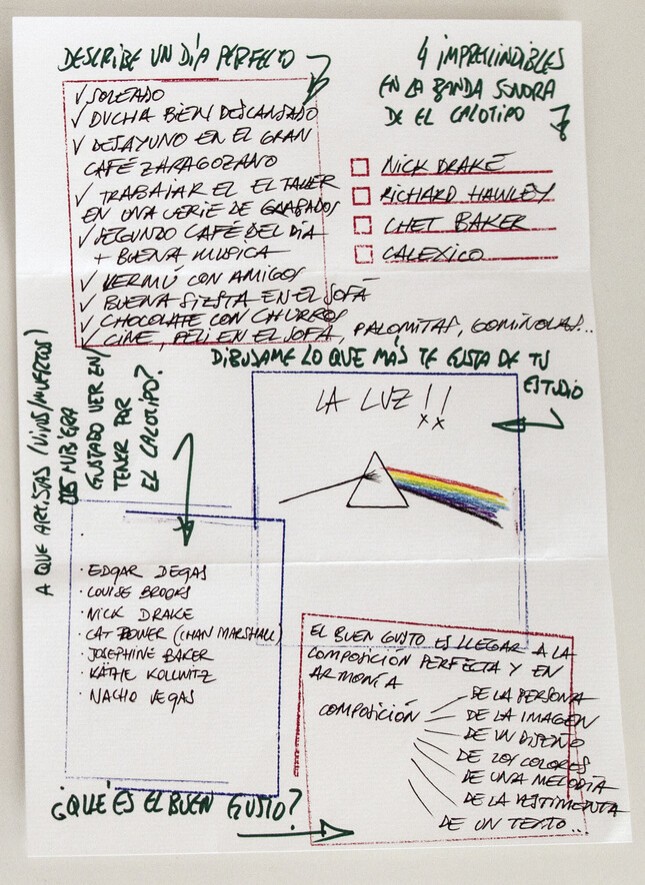 DESCRIBE UN DÍA PERFECTO
✓ SOLEADO
✓ DUCHA BIEN DESCANSADO
✓ DESAYUNO EN EL GRAN
CAFÉ ZARAGOZANO
✓ TRABAJAR EL EL TALLER
EN UNA SERIE DE GRABADOS
✓ SEGUNDO CAFÉ DEL DÍA
+ BUENA MÚSICA
✓ VERMÚ CON AMIGOS
✓ BUENA SIESTA EN EL SOFÁ
✓ CHOCOLATE CON CHURROS
✓ CINE, PELI EN EL SOFÁ, PALOMITAS, GOMINOLAS...
4 IMPRESCINDIBLES
EN LA BANDA SONORA
DE EL CALOTIPO
NICK DRAKE
RICHARD HAWLEY
CHET BAKER
CALEXICO
DIBUSAME LO QUE MÁS TE GUSTA DE TU
ESTUDIO
LA LUZ!!
A QUE ARTISTAS (VIVOS/MUERTOS)
OS HUBIERA
GUSTADO VER EN/
TENER POR
EL CALOTIPO?
· EDGAR DEGAS
· LOUISE BROOKS
· NICK DRAKE
· CAT POWER (CHAN MARSHALL)
· JOSEPHINE BAKER
· KÄTHE KOLLWITZ
· NACHO VEGAS
¿QUÉ ES EL BUEN GUSTO?
EL BUEN GUSTO ES LLEGAR A LA
COMPOSICIÓN PERFECTA Y EN
ARMONÍA
COMPOSICIÓN
DE LA PERSONA
DE LA IMAGEN
DE UN DISEÑO
DE LOS COLORES
DE UNA MELODÍA
DE LA VESTIMENTA
DE UN TEXTO...